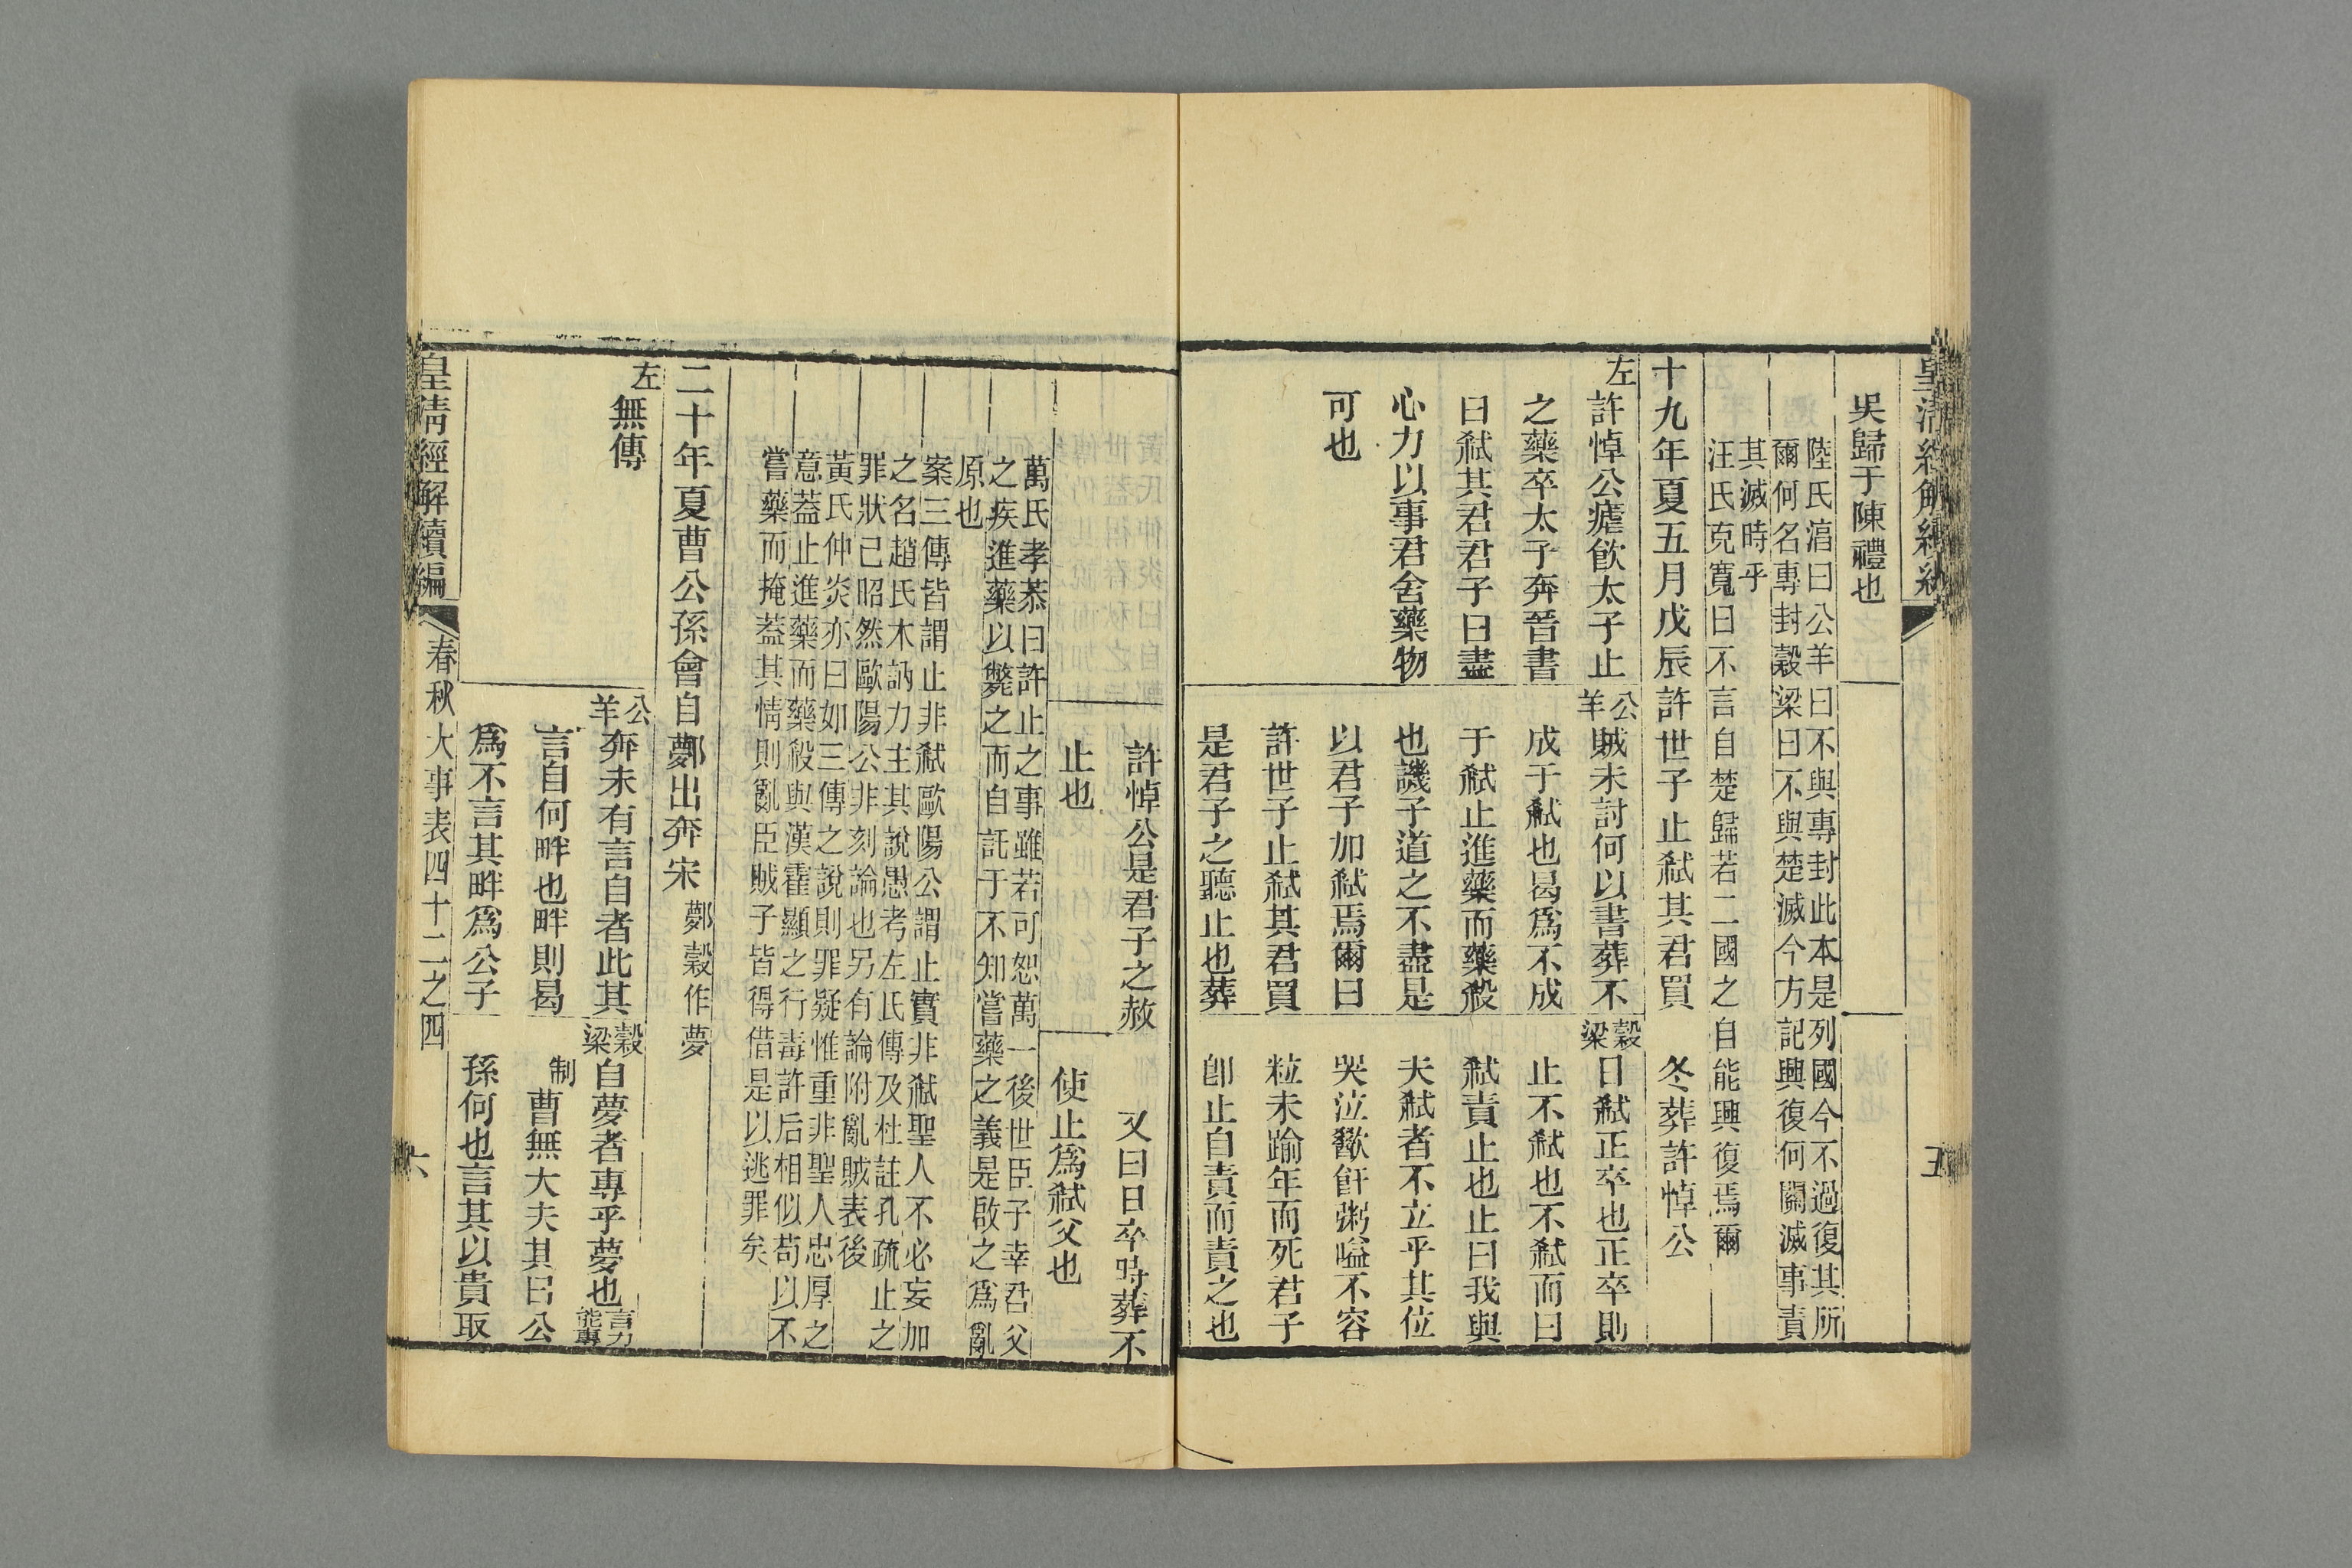 皇清經解續編
五
吳歸于陳禮也
陸氏淳曰公羊曰不與專封此本是列國今不過復其所
爾何名專封穀梁曰不與楚滅今方記興復何關滅事責
其滅時乎
汪氏克寬曰不言自楚歸若二國之自能興復焉爾
十九年夏五月戊辰許世子止弑其君買 冬葬許悼公
左
許悼公瘧飮太子止
之藥卒太子奔晉書
曰弑其君君子曰盡
心力以事君舍藥物
可也
公羊
賊未討何以書葬不
成于弑也曷爲不成
于弑止進藥而藥殺
也譏子道之不盡是
以君子加弑焉爾曰
許世子止弑其君買
是君子之聽止也葬
穀梁
日弑正卒也正卒則
止不弑也不弑而曰
弑責止也止曰我與
夫弑者不立乎其位
哭泣歠飦粥嗌不容
粒未踰年而死君子
卽止自責而責之也
許悼公是君子之赦
止也
又曰日卒時葬不
使止爲弑父也
萬氏孝恭曰許止之事雖若可恕萬一後世臣子幸君父
之疾進藥以斃之而自託于不知嘗藥之義是啟之爲亂
原也
案三傳皆謂止非弑歐陽公謂止實非弑聖人不必妄加
之名趙氏木訥力主其說愚考左氏傳及杜註孔疏止之
罪狀已昭然歐陽公非刻論也另有論附亂賊表後
黃氏仲炎亦曰如三傳之說則罪疑惟重非聖人忠厚之
意蓋止進藥而藥殺與漢霍顯之行毒許后相似苟以不
嘗藥而掩蓋其情則亂臣賊子皆得借是以逃罪矣
二十年夏曹公孫會自鄸出奔宋 鄸穀作夢
左
無傳
公羊
奔未有言自者此其
言自何畔也畔則曷
爲不言其畔爲公子
穀梁
自夢者專乎夢也
言力
能專
制
曹無大夫其曰公
孫何也言其以貴取
皇清經解續編
春秋大事表四十二之四
六